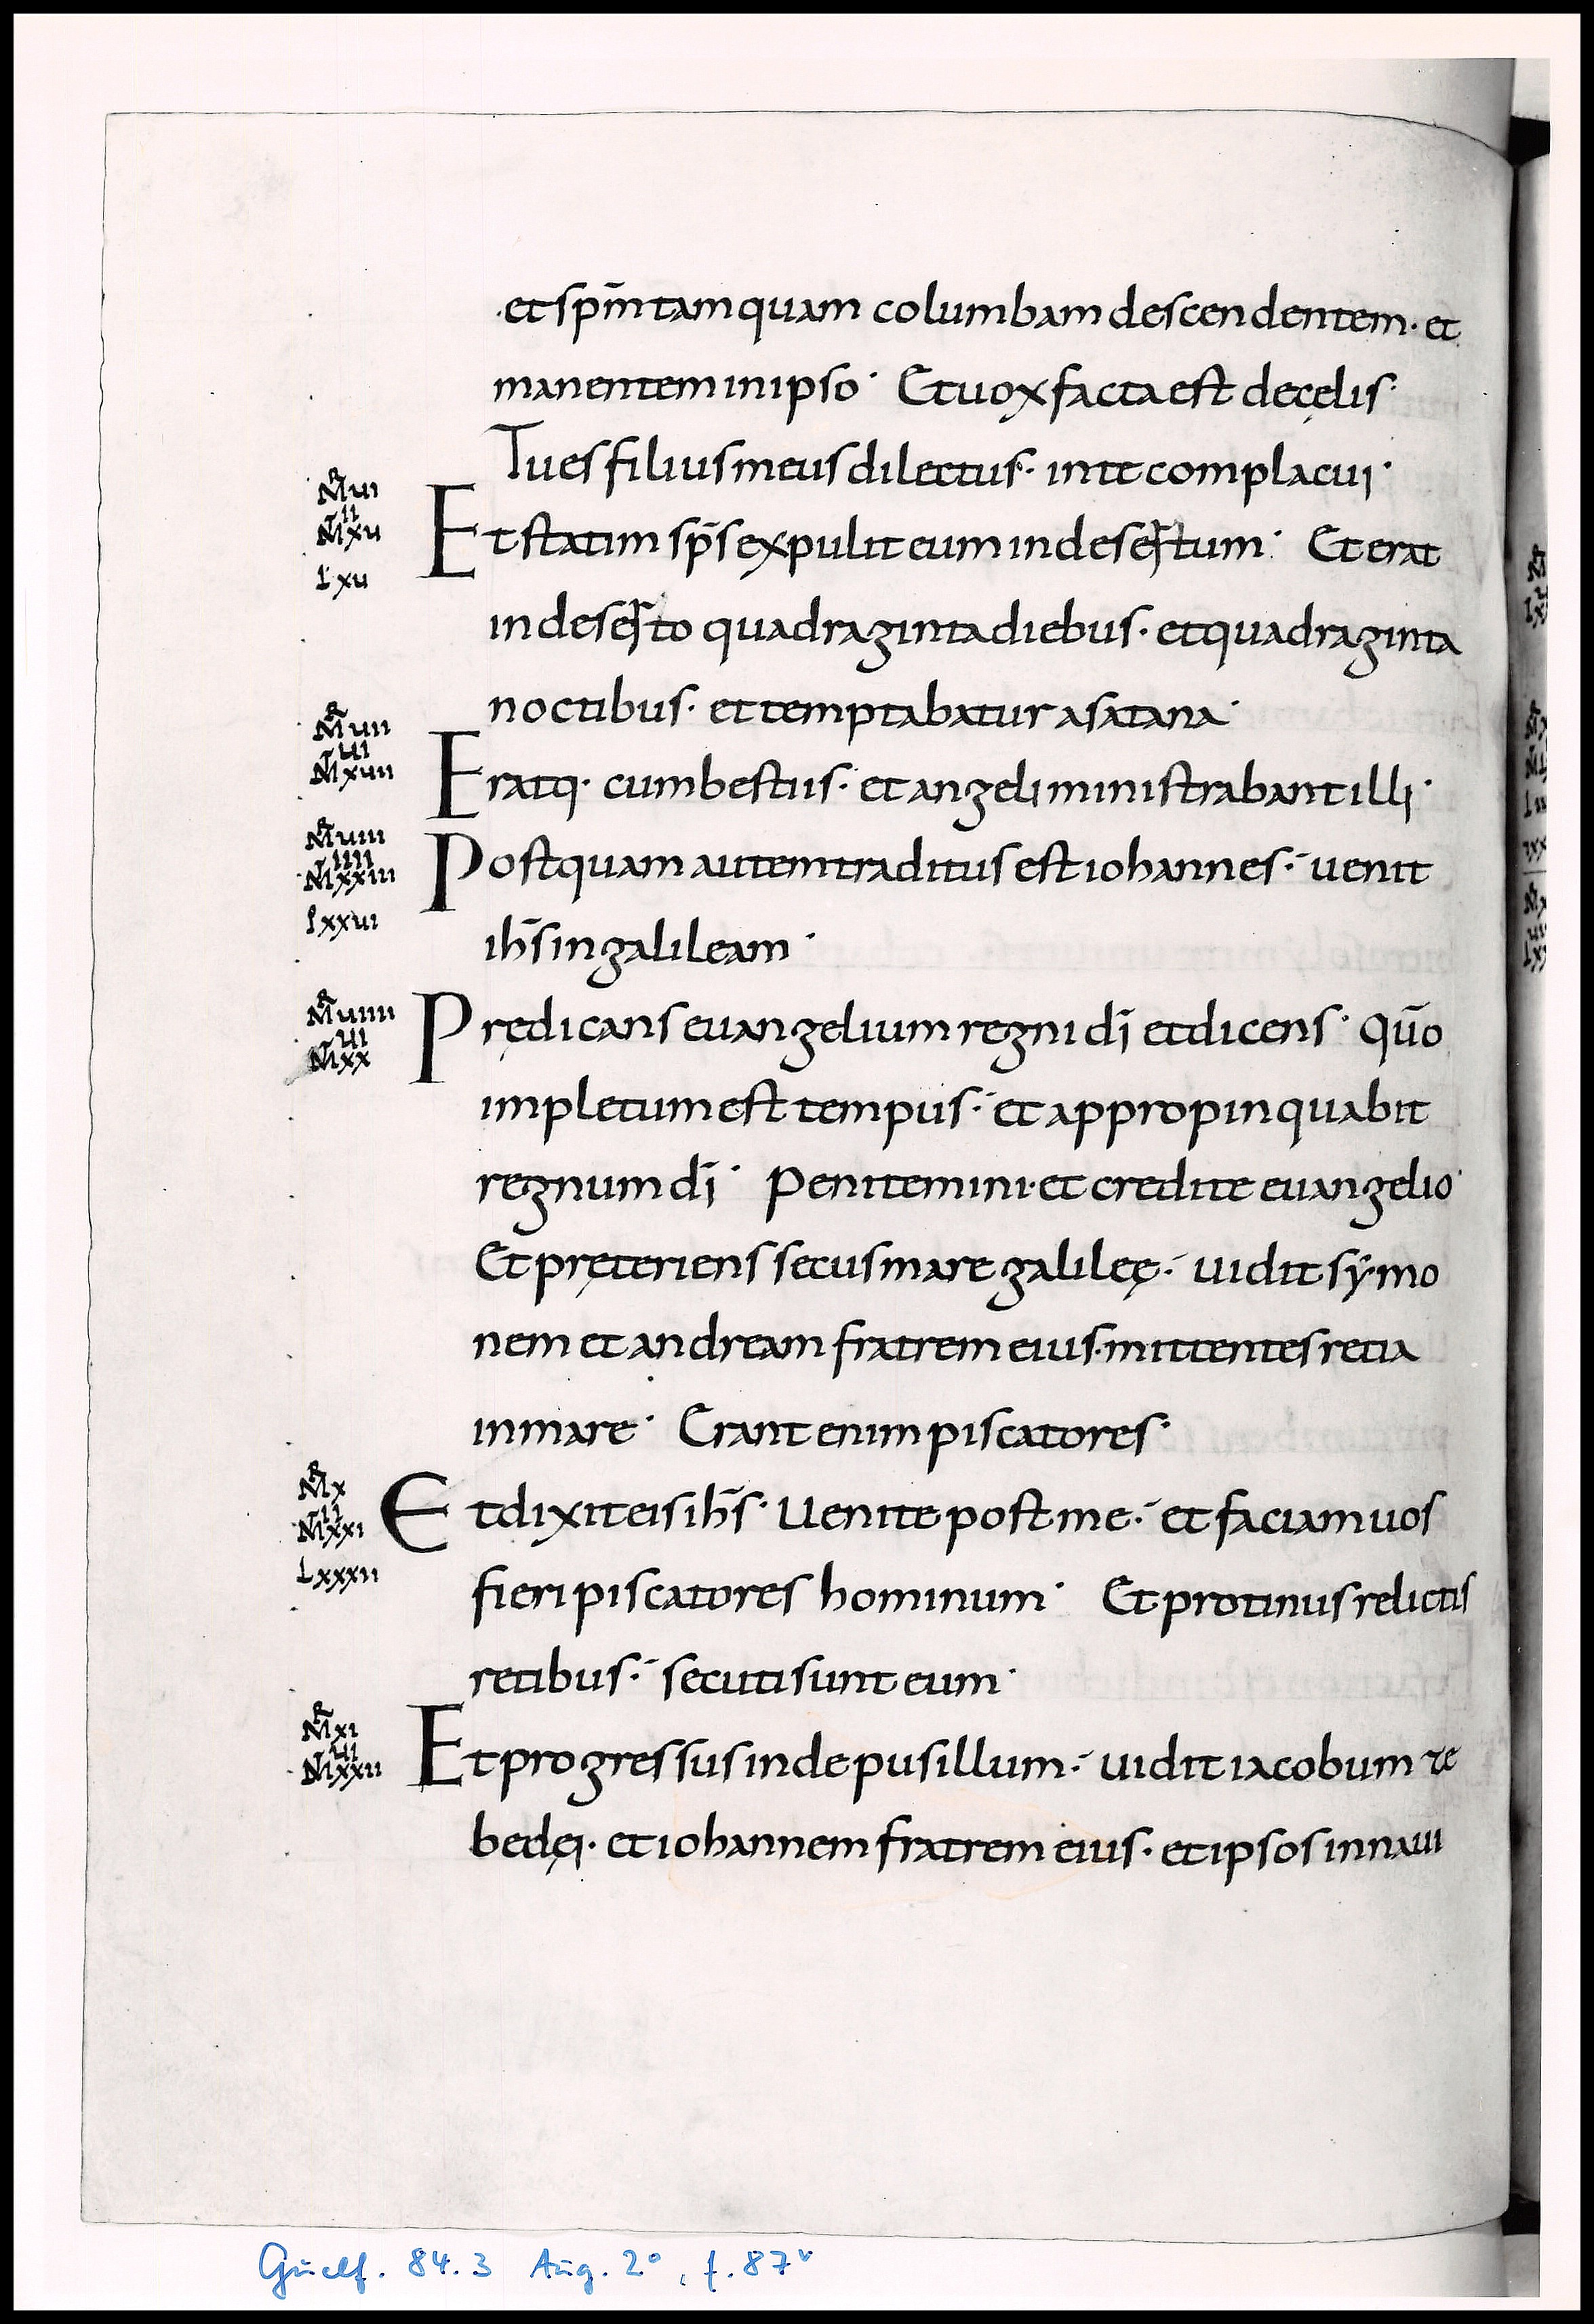 et sp̄m tamquam columbam descendentem· et
manentem in ipso· Et uox facta est de cęlis·
Tu es filius meus dilectus· in te complacui·
M̄R ui
M̄ xu
L xu
Et statim sp̄s expulit eum in desertum· Et erat
in deserto quadraginta diebus· et quadraginta
noctibus· et temptabatur a satana·
M̄R uii
ui
M̄ xuii
Eratq· cum bestiis· et angeli ministrabant illi·
M̄R uiii
iiii
M̄ xxiii
L xxui
Postquam autem traditus est iohannes· uenit
ih̄s in galileam·
M̄R uiiii
ui
M̄ xx
Prędicans euangelium regni dī et dicens· Qūo
impletum est tempus· et appropinquabit
regnum dī· Penitemini· et credite euangelio·
Et pręteriens secus mare galileę· uidit sẏmo
nem et andream fratrem eius· mittentes retia
in mare· Erant enim piscatores·
M̄R x
ii
M̄ xxi
L xxxii
Et dixit eis ih̄s· Uenite post me· et faciam uos
fieri piscatores hominum· Et protinus relictis
retibus· secuti sunt eum·
M̄R xi
ui
M̄ xxii
Et progressus inde pusillum· uidit iacobum ze
bedęi· et iohannem fratrem eius· et ipsos in naui
Guelf. 84.3 Aug. 2°, f. 87v